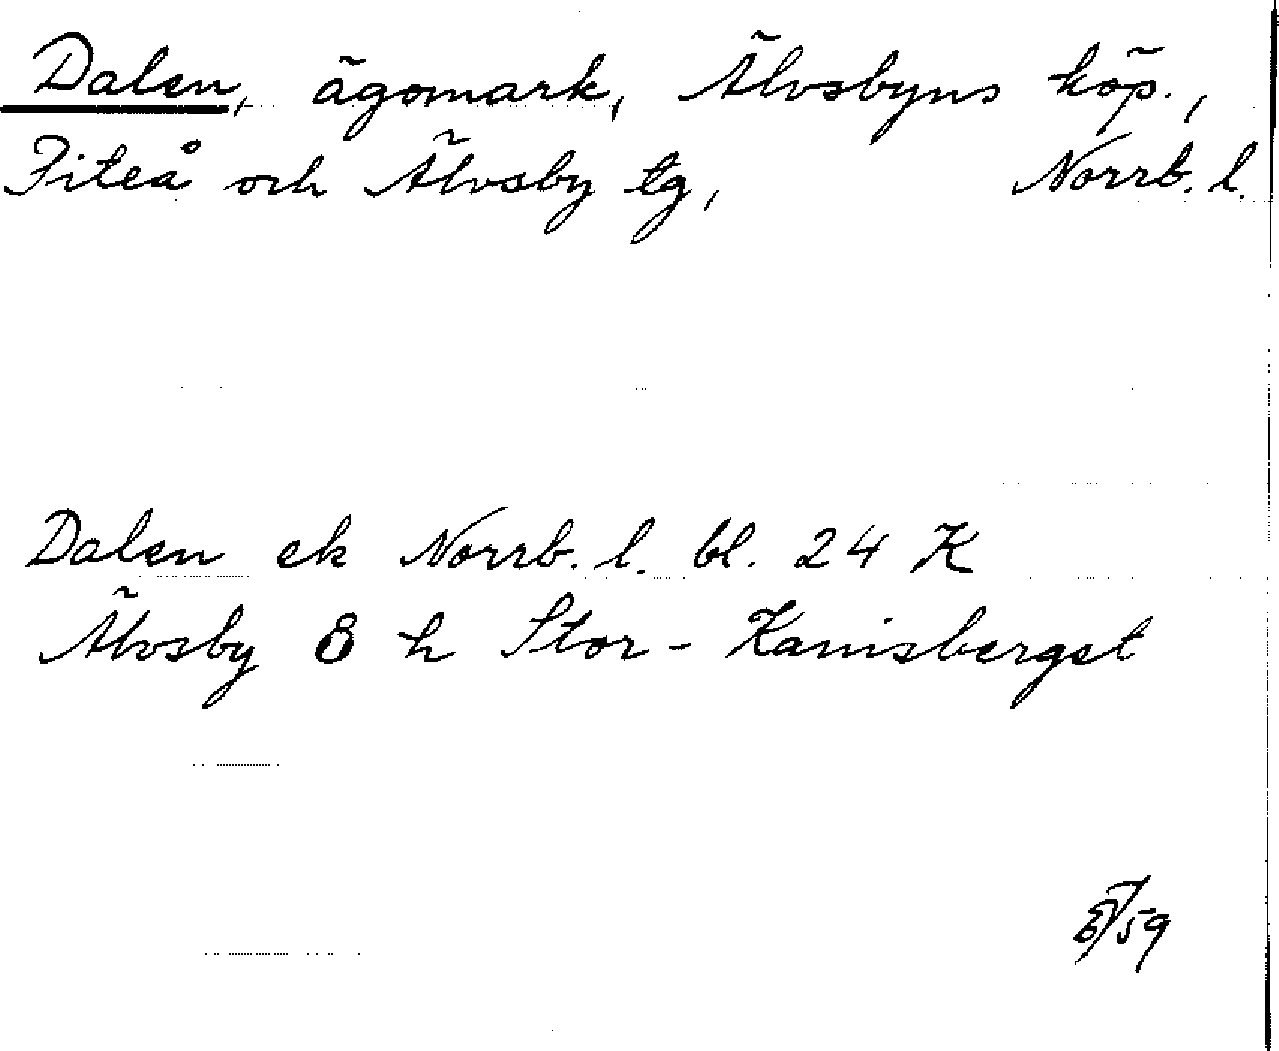 Dalen, ägomark, Älvsbyns köp.,
Piteå och Älvsby tg, Norrb. l.
Dalen ek Norrb. l. bl. 24 K
Älvsby 8 h Stor-Kanisberget
/59